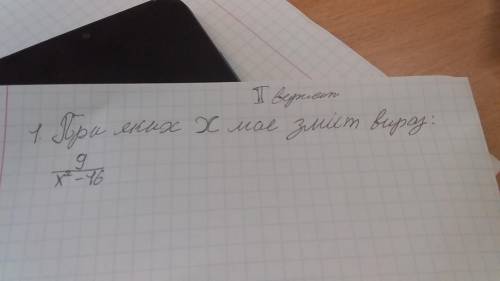 II варіант
1 При яких X має зміст вираз:
9
x² - 16